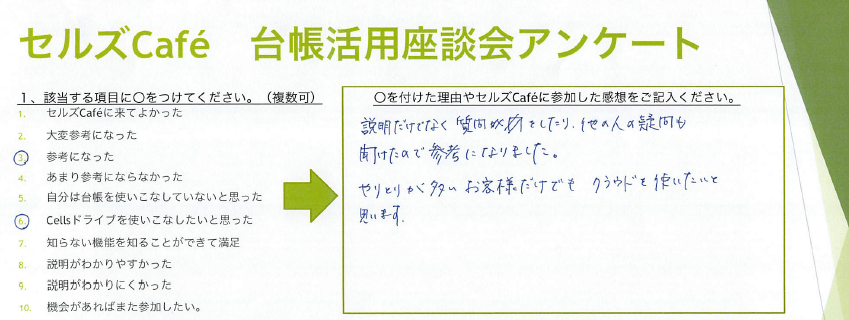 セルズCafé 台帳活用座談会アンケート
1、該当する項目に〇をつけてください。（複数可）
1. セルズCaféに来てよかった
2. 大変参考になった
3. 参考になった
4. あまり参考にならなかった
5. 自分は台帳を使いこなしていないと思った
6. Cellsドライブを使いこなしたいと思った
7. 知らない機能を知ることができて満足
8. 説明がわかりやすかった
9. 説明がわかりにくかった
10. 機会があればまた参加したい。
〇を付けた理由やセルズCaféに参加した感想をご記入ください。
説明だけでなく質問をしたり、他の人の疑問も
聞けたので参考になりました。
やりとりが多いお客様だけでもクラウドを使いたいと
思います。